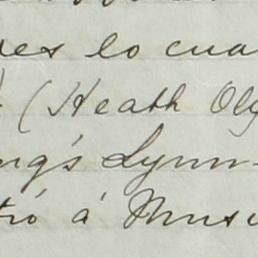 es lo cua
(Heath Oly
ng's Lynn-
tró á Musi